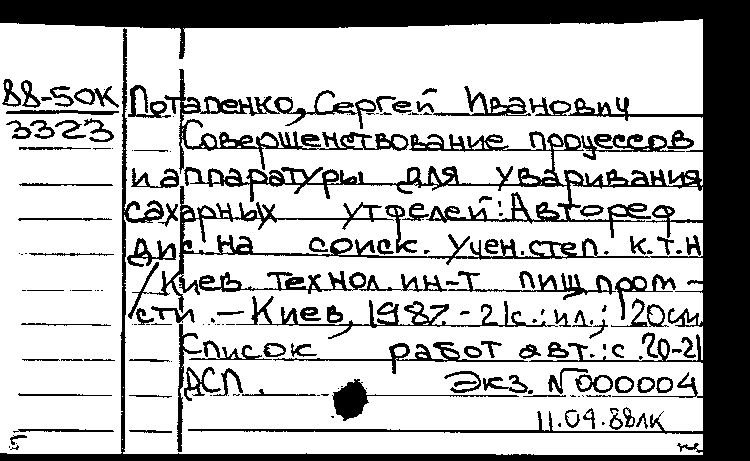 88-50К Потапенко, Сергей Иванович
3323 Совершенствование процессов
и аппаратуры для уваривания
сахарных утфелей: Автореф
дис. на соиск. учен. степ. к.т.н
/Киев. технол. ин-т пищ пром-
сти. - Киев, 1987. - 21с.: ил.; 20см.
Список работ авт.: с. 20-21
ДСП. Экз. N000004
11.04.88ЛК
5